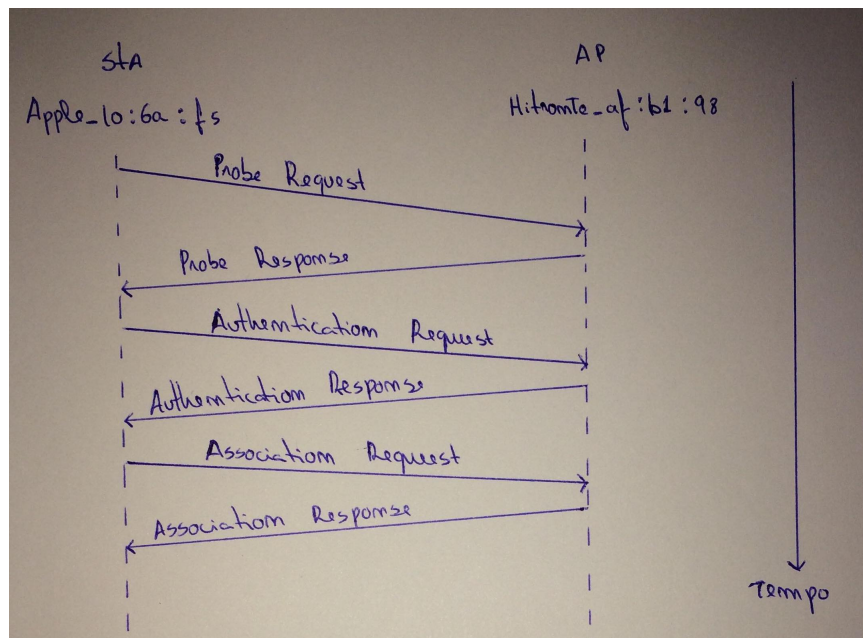 STA
AP
Apple_10:6a:f5
HitronTe_af:b1:98
Probe Request
Probe Response
Authentication Request
Authentication Response
Association Request
Association Response
Tempo